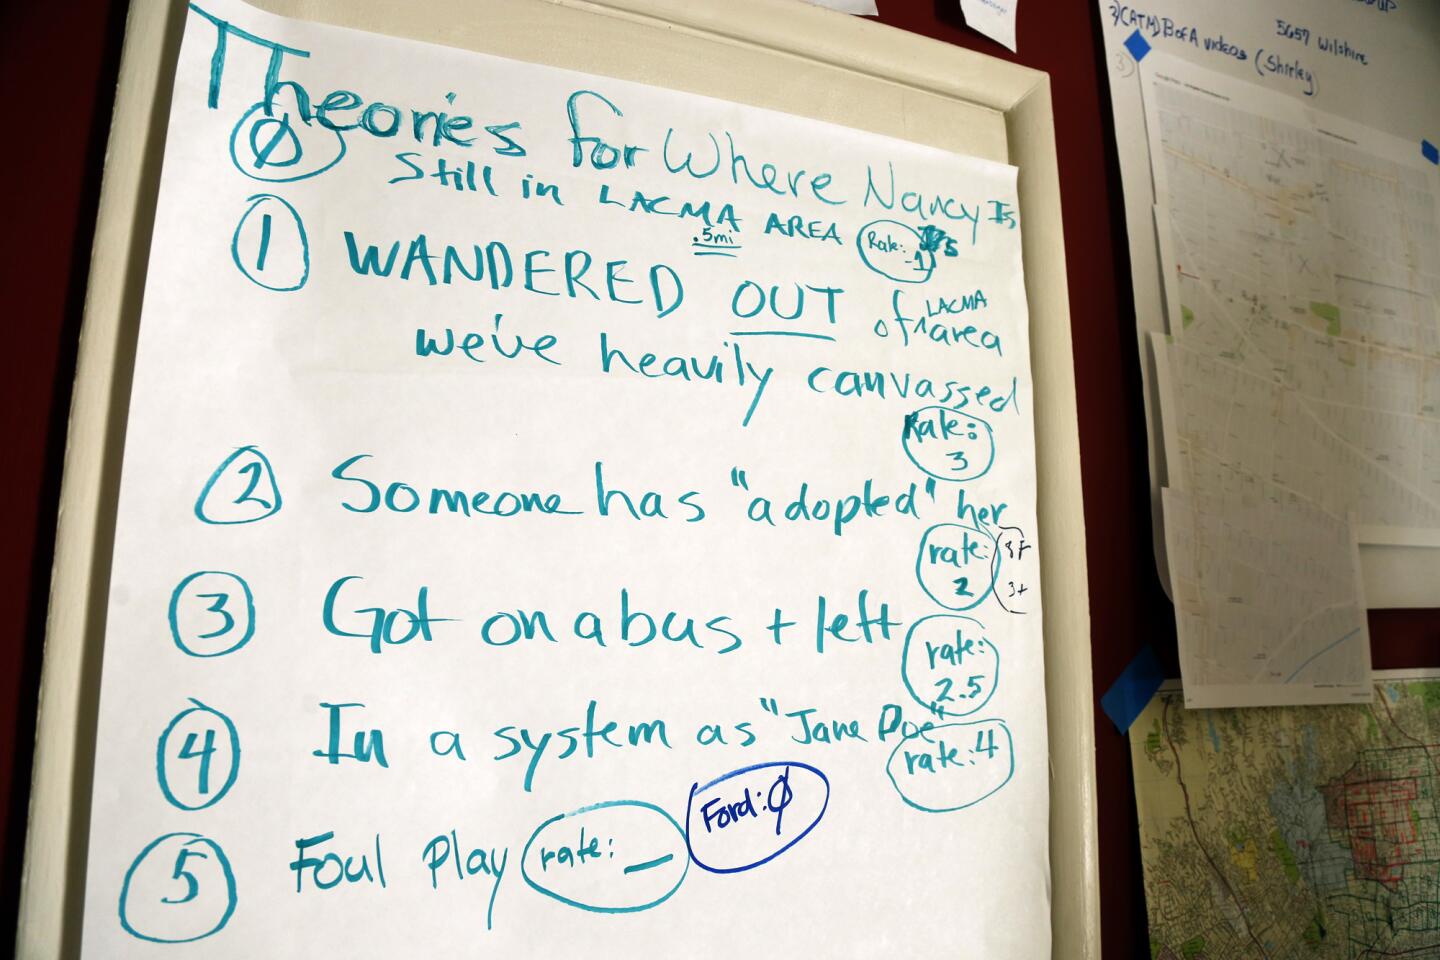 Theories for Where Nancy Is
Ø Still in LACMA AREA
.5mi
Rate:
-1
1 WANDERED OUT of LACMA area
we've heavily canvassed
Rate:
3
2 Someone has "adopted" her
rate:
2
3+
3 Got on a bus + left
rate:
2.5
4 In a system as "Jane Doe"
rate: 4
5 Foul Play rate: _
Ford: Ø
3) (ATM) BofA videos (Shirley)
5657 Wilshire